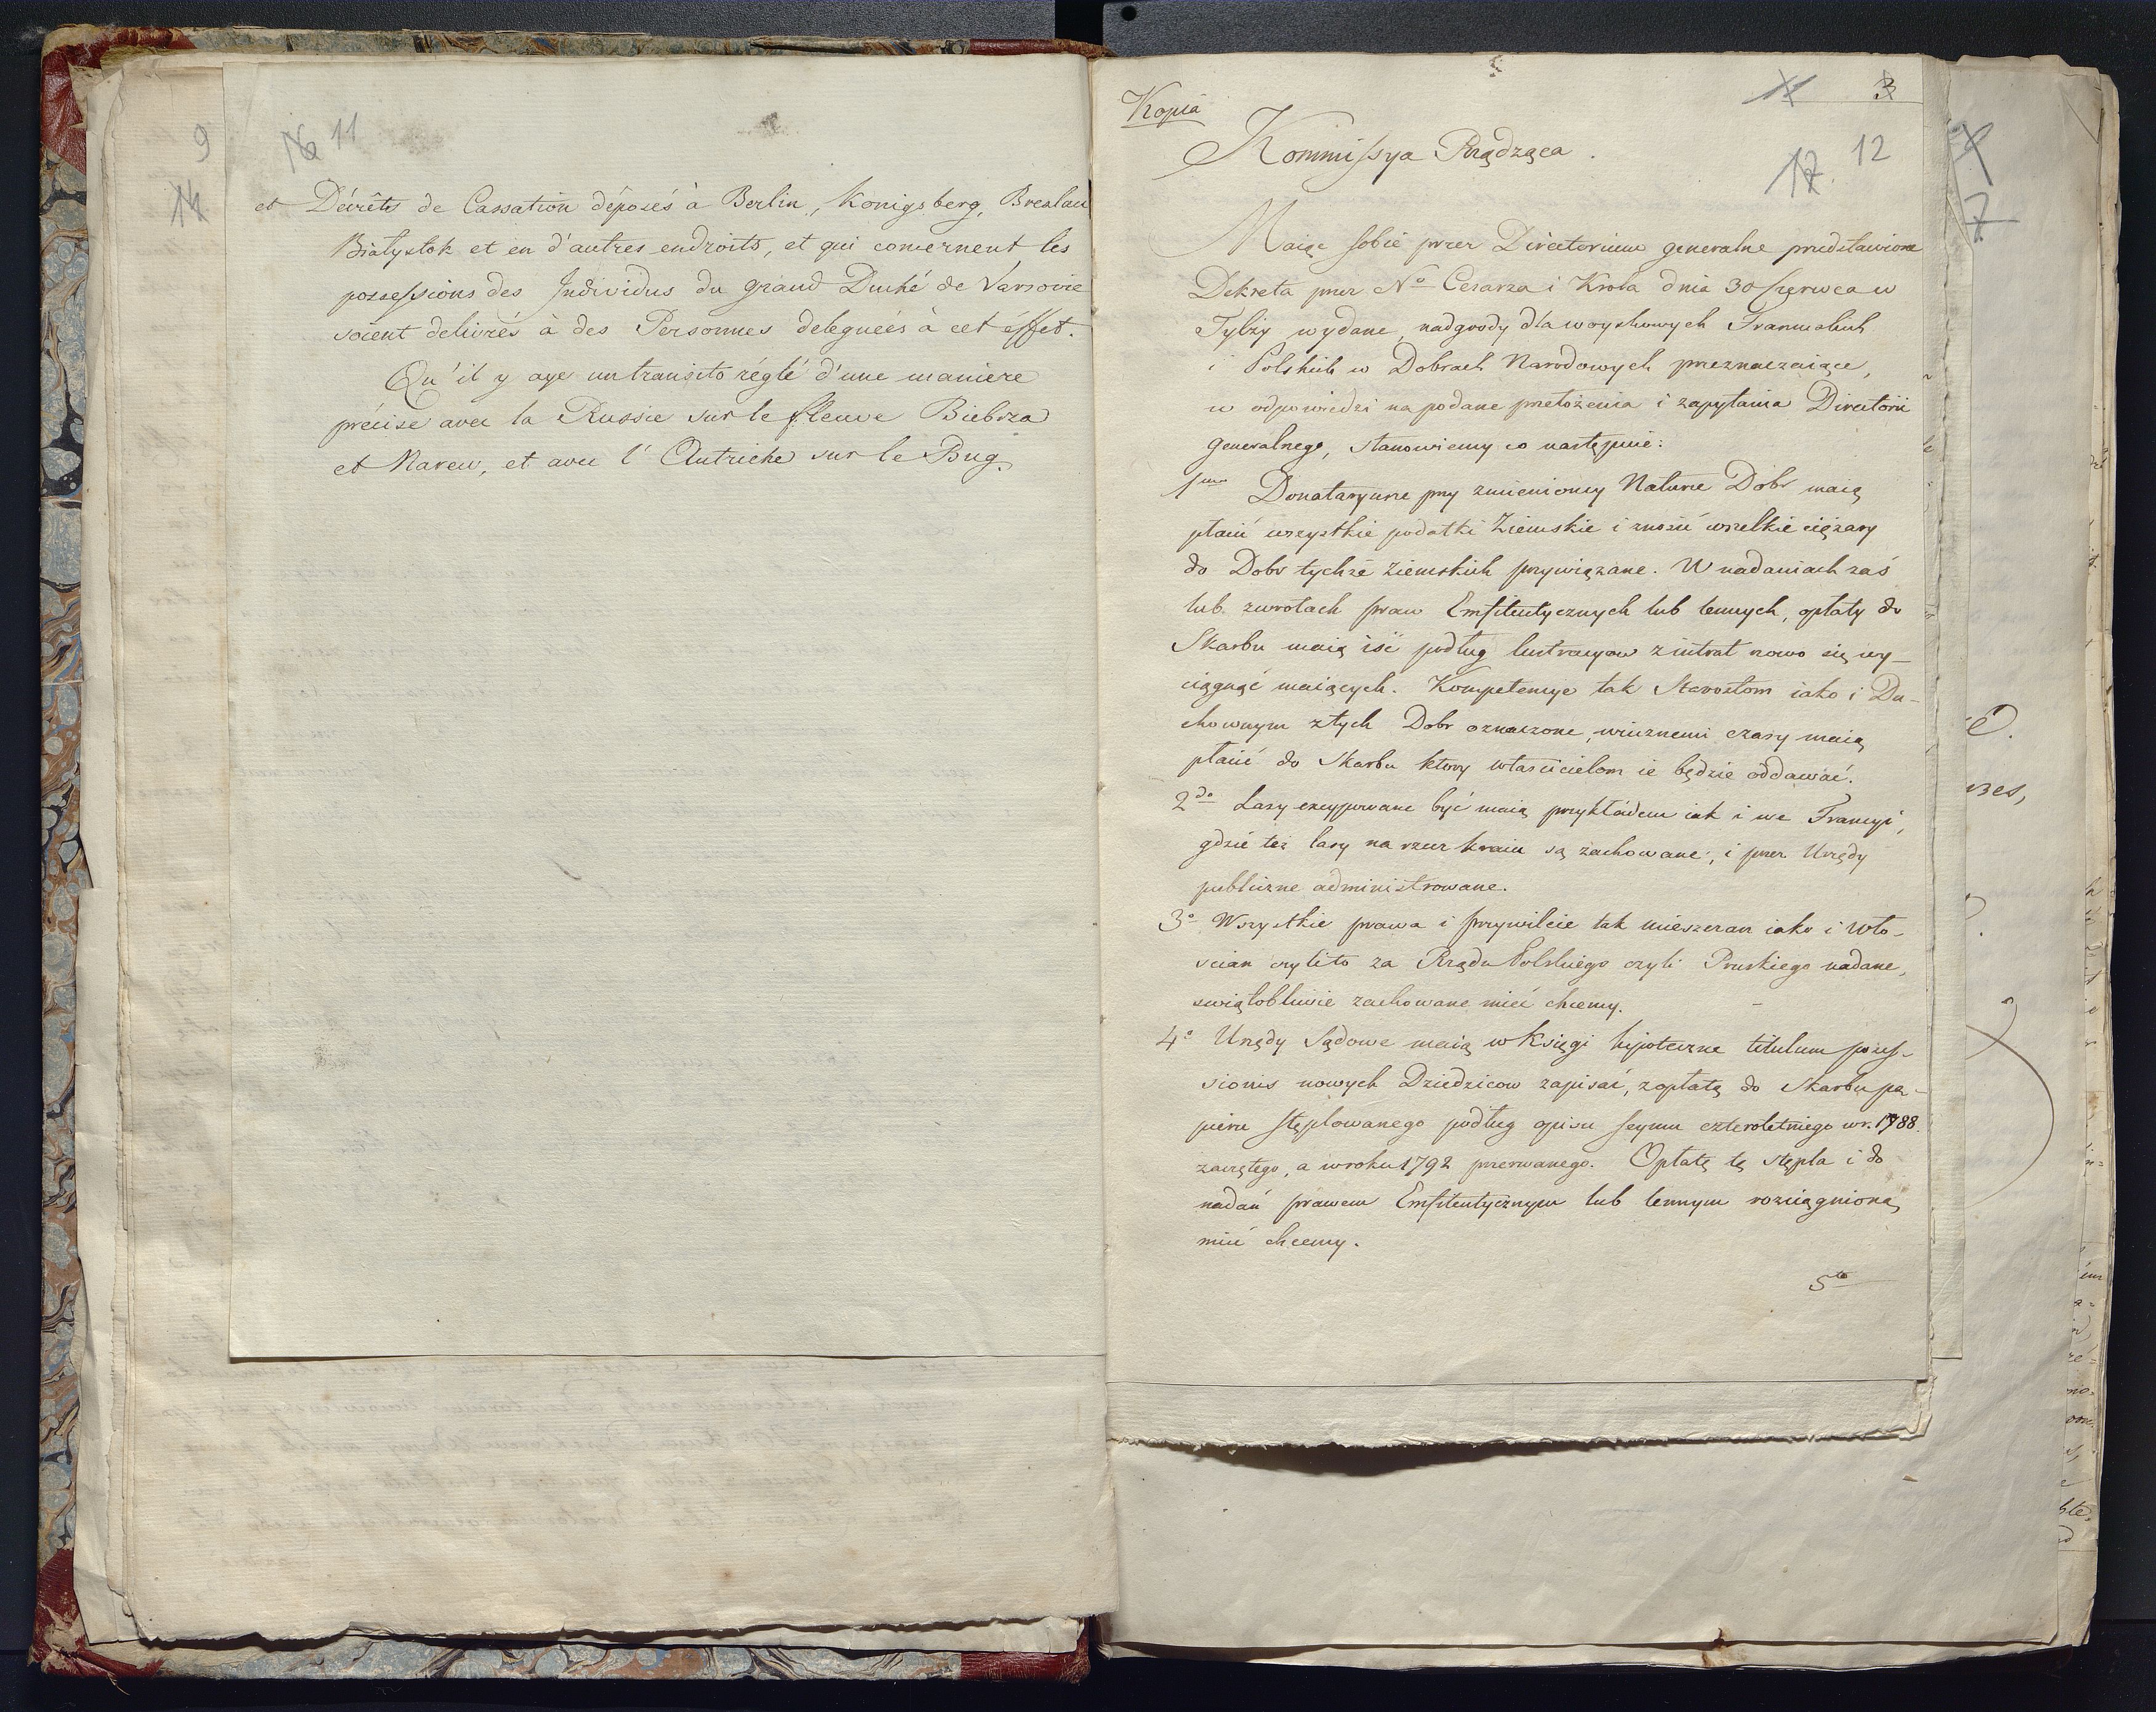 9
14
11
et Décrêts de Cassation déposés à Berlin, Konigsberg, Breslau
Białystok et en d'autres endroits, et qui concernent les
possessions des Individus du grand Duché de Varsovie
soient delivrés à des Personnes deleguées à cet éffet.
Qu'il y aye un transito réglé d'une maniere
précise avec la Russie sur le fleuve Biebrza
et Narew, et avec l'Autriche sur le Bug.
Kopia
3
Kommissya Rządząca.
12
Maiąc sobie przez Directorium generalne przedstawione
Dekreta przez No Cesarza i Krola dnia 30 Czerwca w
Tylży wydane, nadgrody dla woyskowych Francuskich
i Polskich w Dobrach Narodowych przeznaczaiące,
w odpowiedzi na podane przełożenia i zapytania Directorii
generalnego, stanowiemy co następuie:
1mo Donataryusze przy zmienioney Naturze Dobr maią
płacić wszystkie podatki Ziemskie i znosić wszelkie ciężary
do Dobr tychże ziemskich przywiązane. W nadaniach zaś
lub zwrotach praw Emfiteutycznych lub lennych, opłaty do
Skarbu maią iść podług lustracyow z intrat nowo się wy-
ciągnąć maiących. Kompetencye tak Starostom iako i Du-
chownym z tych Dobr oznaczone, wiecznemi czasy maią
płacić do Skarbu ktory własicielom ie będzie oddawać.
2do Lasy excypowane być maią przykładem iak i we Francyi,
gdzie też lasy na rzecz kraiu są zachowane, i przez Urzędy
publiczne administrowane.
3o Wszystkie prawa i przywileie tak mieszczan iako i Wło-
scian czyli to za Rządu Polskiego czyli Pruskiego nadane,
swiątobliwie zachowane mieć chcemy.
4o Urzędy Sądowe maią w Księgi hipoteczne titulum posses-
sionis nowych Dziedzicow zapisać, z opłatą do Skarbu pa-
pieru stęplowanego podług opisu seymu czteroletniego w r. 1788.
zaczętego, a w roku 1792 przerwanego. Opłatę tę stępla i do
nadań prawem Emfiteutycznym lub lennym rozciągnioną
mieć chcemy.
5to